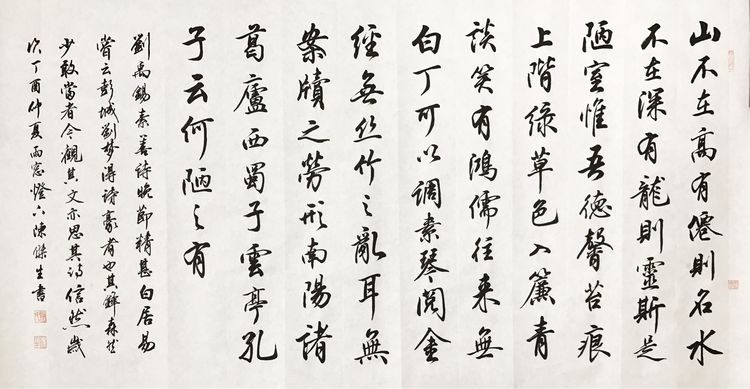 山不在高有僊則名水
不在深有龍則靈斯是
陋室惟吾德馨苔痕
上階綠草色入簾青
談笑有鴻儒往來無
白丁可以調素琴閱金
經無丝竹之亂耳無
案牘之勞形南陽諸
葛廬西蜀子雲亭孔
子云何陋之有
劉禹錫素善詩晚節精甚白居易
嘗云彭城劉夢得詩豪者也其鋒森然
少敢當者今觀其文亦思其詩信然歲
次丁酉仲夏雨窓燈下陳傑生書